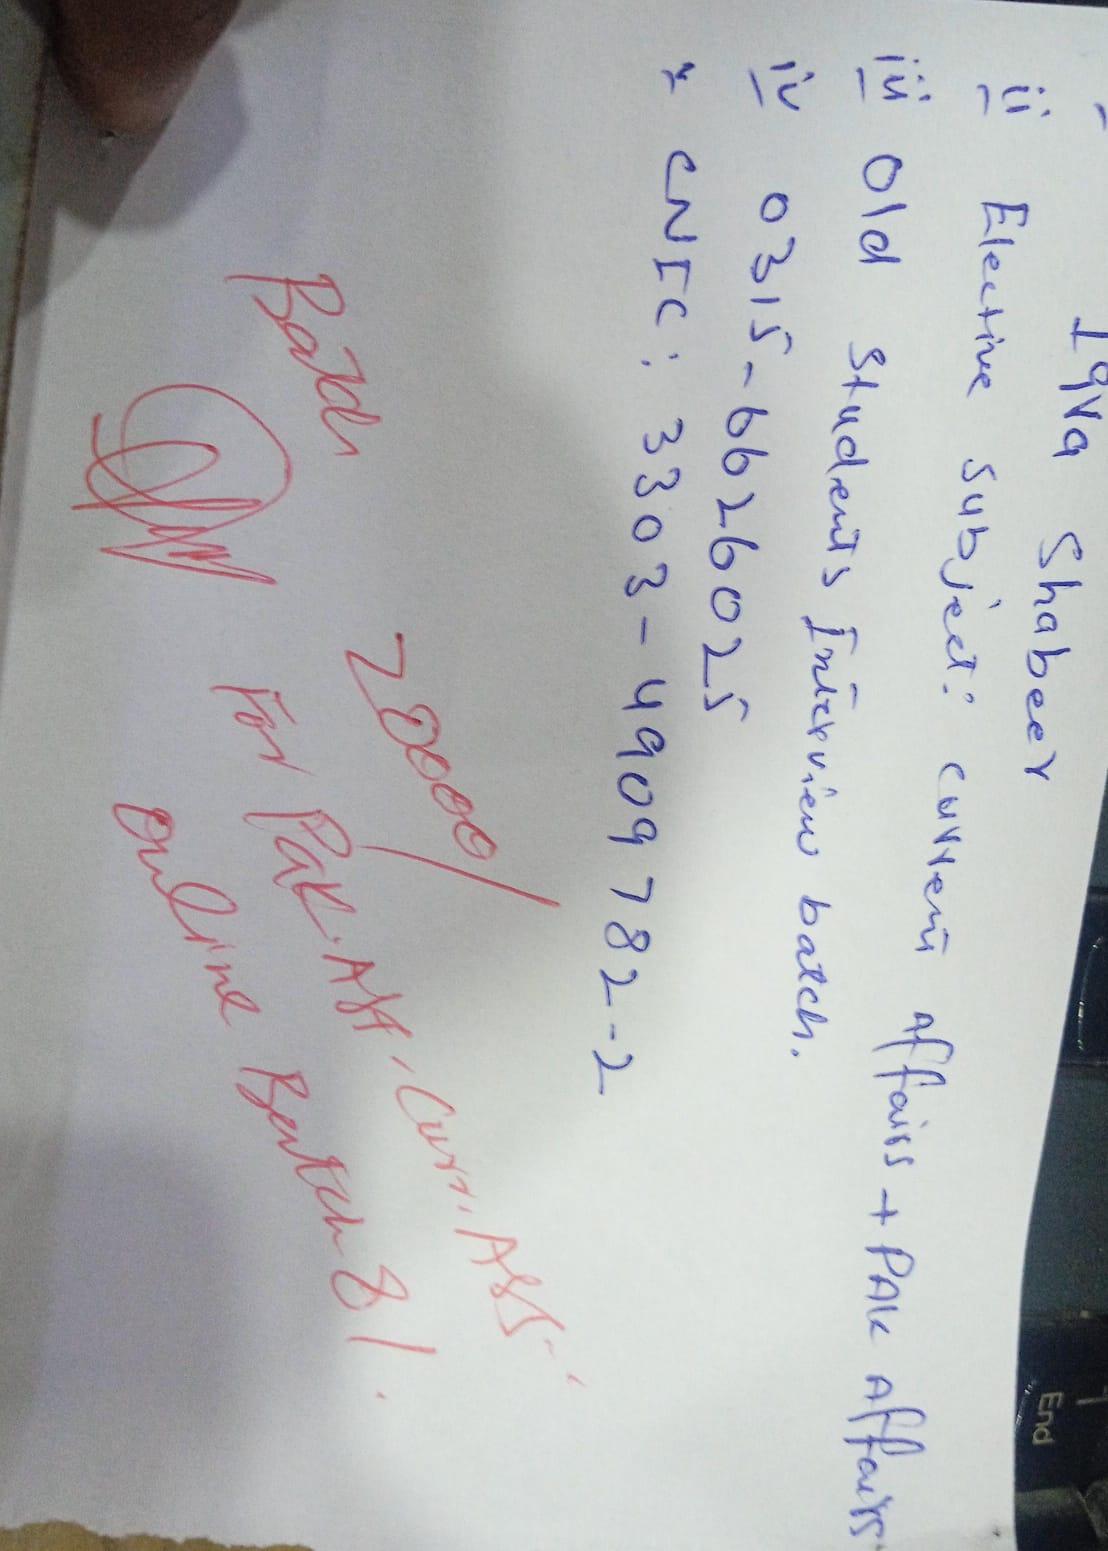 Iqra Shabeer
ii Elective subject: current affairs + PAK Affairs
iii Old students Interview batch.
iv 0315-6626025
CNIC: 3303-4909782-2
20000/
For Pak. Aff, Curr. Aff
online Batch 81.
End